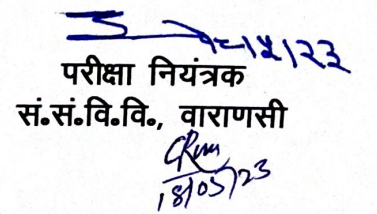 परीक्षा नियंत्रक
सं॰सं॰वि॰वि॰, वाराणसी
18/05/23